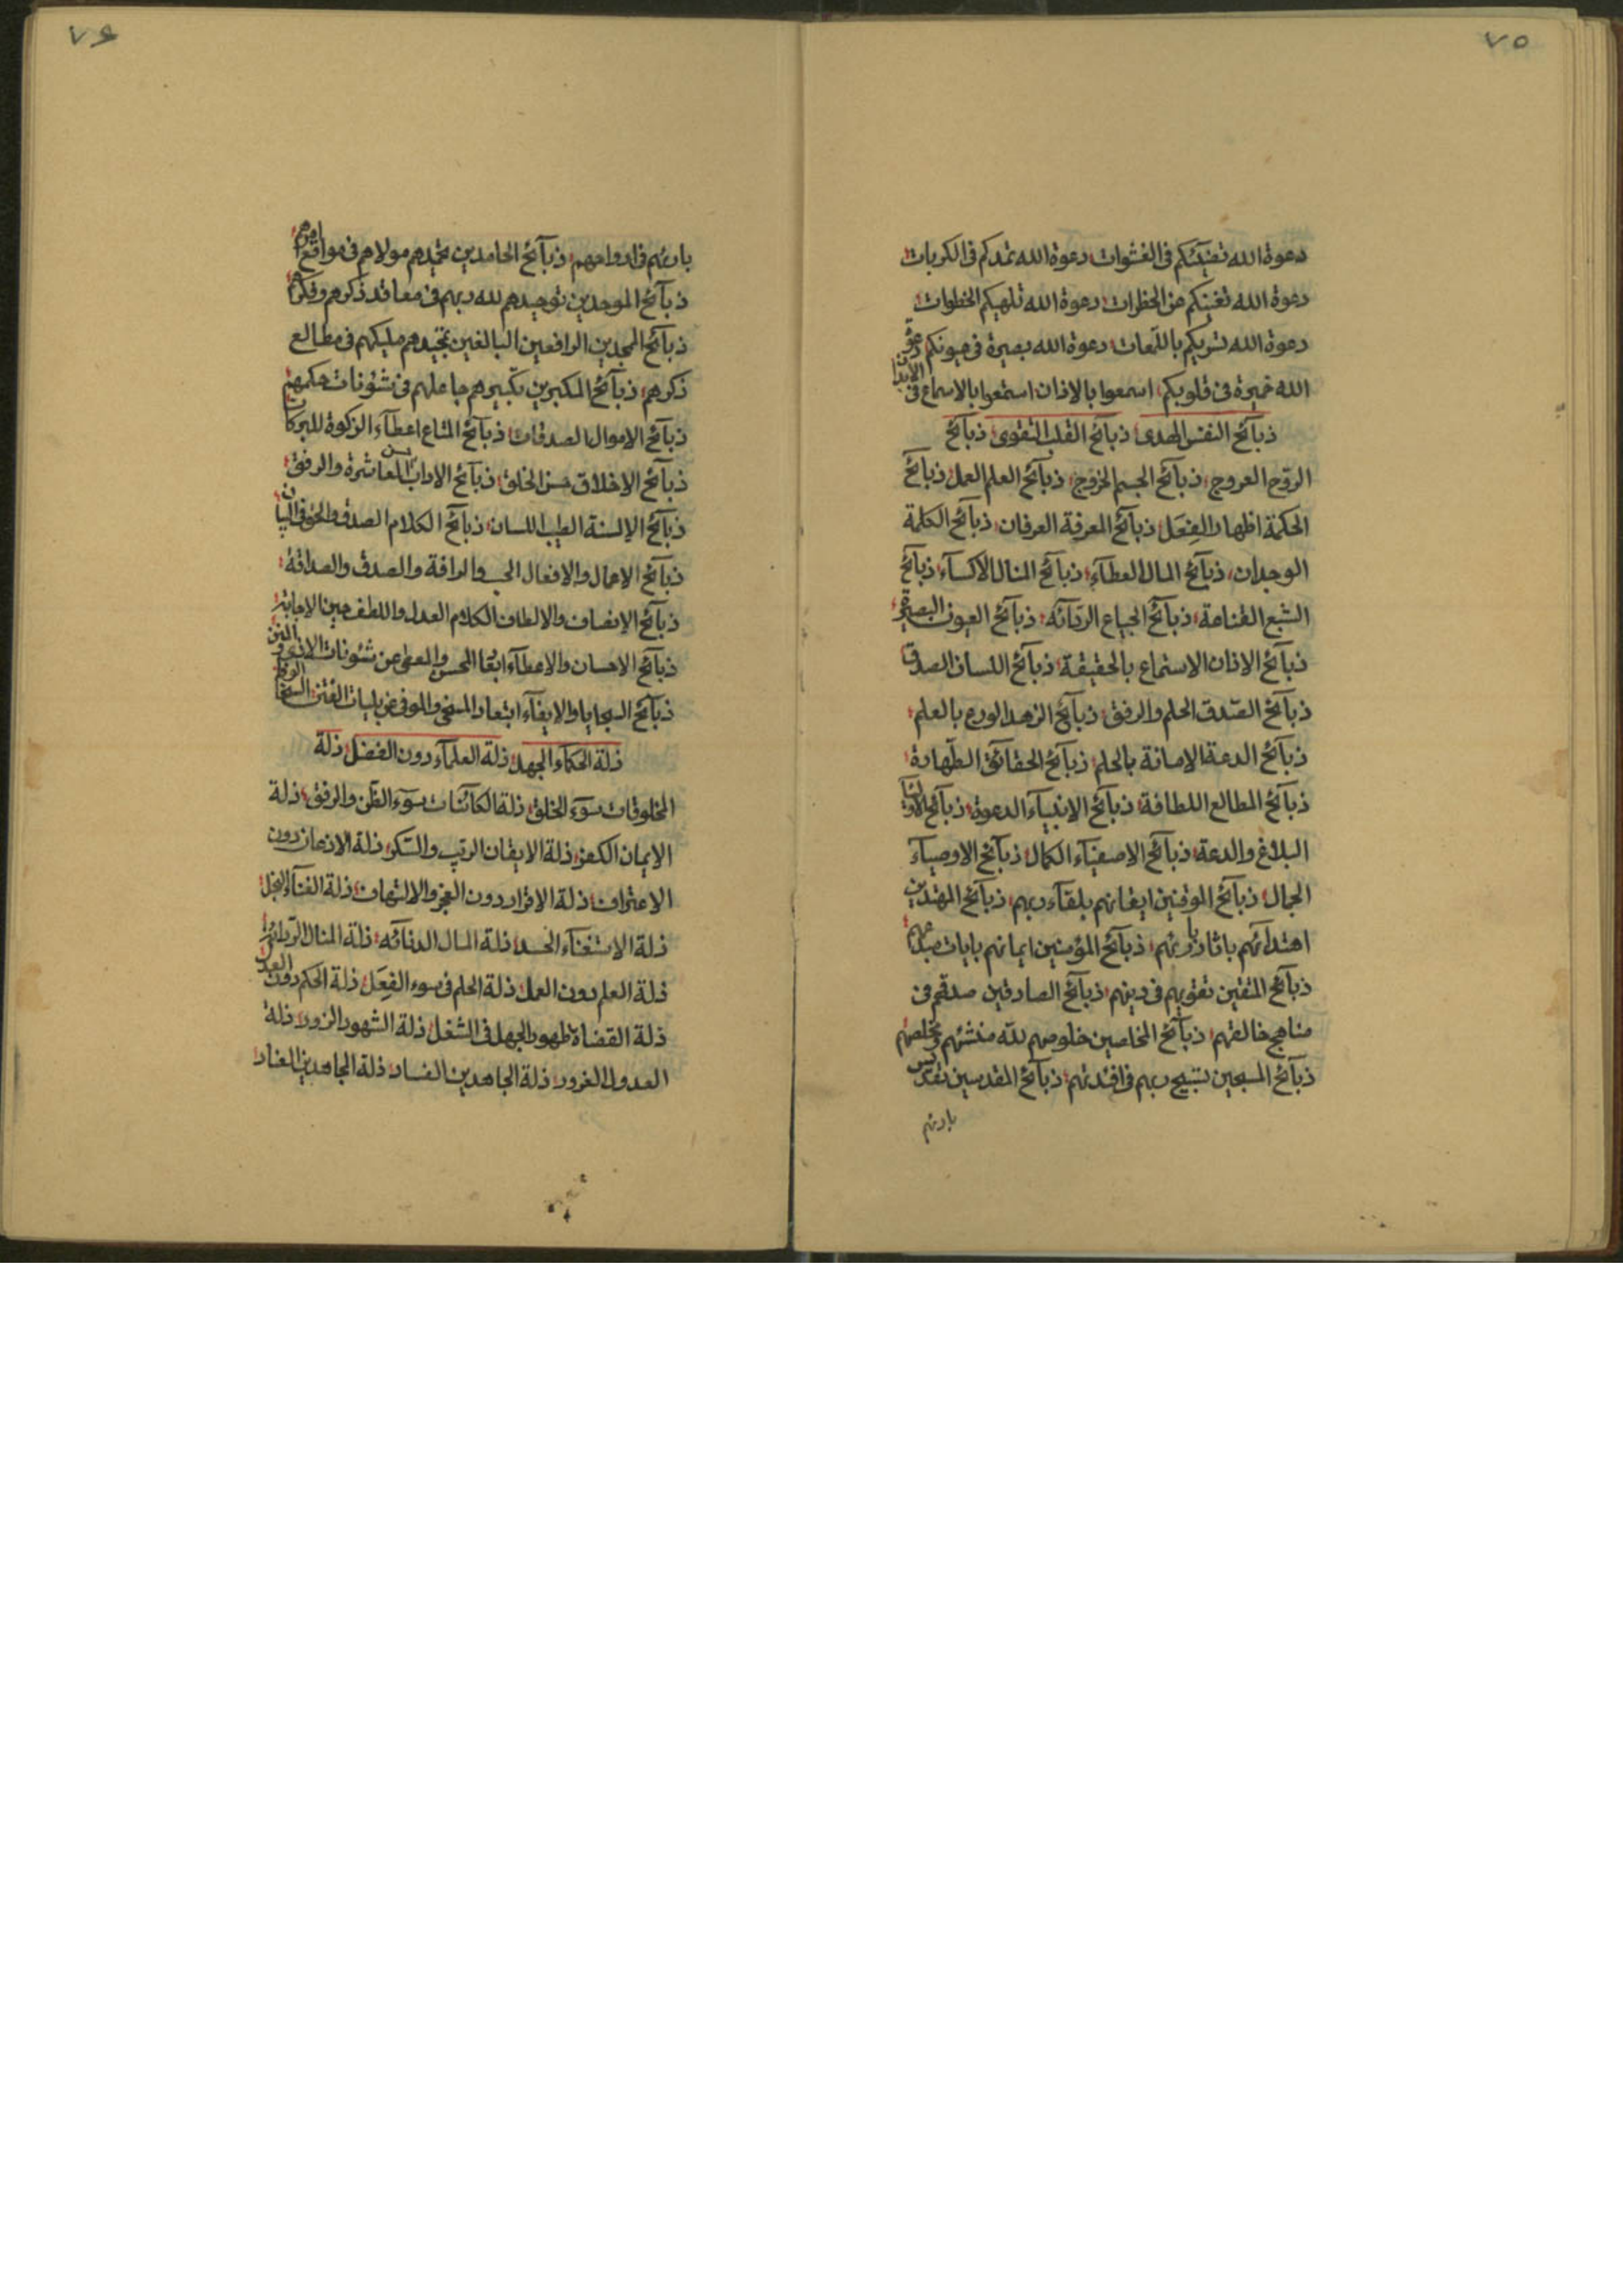 ٧٥
دعوة الله تغيثكم فى الغشوات دعوة الله تمدكم فى الكربات
دعوة الله تغنيكم عن الخطرات دعوة الله تلهيكم الخطوات
دعوة الله تربكم باللمعات دعوة الله بصيرة فى عيونكم دعوة
الله خميرة فى قلوبكم اسمعوا بالاذان استمعوا بالاسماع فى الابدان
ذبآئح النفس الهدى ذبآئح القلب التقوى ذبآئح
الروح العروج ذبآئح الجسم الخروج ذبآئح العلم العمل ذبآئح
الحكمة اظهار الفعل ذبآئح المعرفة العرفان ذبآئح الكلمة
الوجدان ذبآئح المال العطآء ذبآئح المنال الاكسآء ذبآئح
الشبع القناعة ذبآئح الجياع الردآئه ذبآئح العيون البصيرة
ذبآئح الاذان الاستماع بالحقيقة ذبآئح اللسان الصدق
ذبآئح الصدق الحلم والرفق ذبآئح الزهد الورع بالعلم
ذبآئح الدعة الامانة بالحلم ذبآئح الحقائق الطهارة
ذبآئح المطالع اللطافة ذبآئح الانبيآء الدعوة ذبآئح الاوليآء
البلاغ والدعة ذبآئح الاصفيآء الكمال ذبآئح الاوصيآء
الجمال ذبآئح الموقنين ايقانهم بلقآء ربهم ذبآئح المهتدين
اهتدآئهم باثار بارئهم ذبآئح المؤمنين ايمانهم بايات مبدعهم
ذبآئح المتقين تقويهم فى دينهم ذبآئح الصادقين صدقهم فى
مناهج خالقهم ذبآئح المخلصين خلوصهم لله منشئهم ومخلصهم
ذبآئح المسبحين تسبيح ربهم فى افئدتهم ذبآئح المقدسين تقديس
بارئهم
٧٦
بارئهم فى ارواحهم ذبآئح الحامدين تحميدهم مولاهم فى مواقع امرهم
ذبآئح الموحدين توحيدهم لله ربهم فى معاقد ذكرهم وفكرهم
ذبآئح الممجدين الرافعين البالغين تمجيدهم مليكهم فى مطالع
ذكرهم ذبآئح المكبرين تكبيرهم جاعلهم فى شئونات حكمهم
ذبآئح الاموال الصدقات ذبآئح المتاع اعطآء الزكوة للبركات
ذبآئح الاخلاق حسن الخلق ذبآئح الاداب حسن المعاشرة والرفق
ذبآئح الالسنة الطيب اللسان ذبآئح الكلام الصدق والحق فى البيان
ذبآئح الاعمال والافعال الحب والرافة والصدق والصداقة
ذبآئح الانصاف والالطاف الكلام العدل واللطف حين الاجابة
ذبآئح الاحسان والاعطآء ابقا المحسن والمعطى عن شئونات الاذى و المن
ذبآئح السجايا والايفآء ابتعاد المسخى والموفى عن بليات الفتن السخا
ذلة الحكمآء الجهل ذلة العلمآء دون الفضل ذلة
المخلوقات سوء الخلق ذلة الكآئنات سوء الظن والرفق ذلة
الايمان الكفر ذلة الايقان الريب والسكر ذلة الاذعان دون
الاعتراف ذلة الاقرار دون العجز والالتهاف ذلة الغنآء البخل
ذلة الاستغنآء الحسد ذلة المال الدنائه ذلة المنال الردائه
ذلة العلم دون العمل ذلة الحلم فى سوء الفعل ذلة الحكم دون العدل
ذلة القضاة ظهور الجهل فى الشغل ذلة الشهود الزور ذلة
العدول الغرور ذلة الجاهدين الفساد ذلة المجاهدين العناد